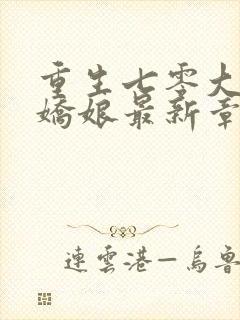 重生七零大
嬌娘最新章
連雲港—烏魯